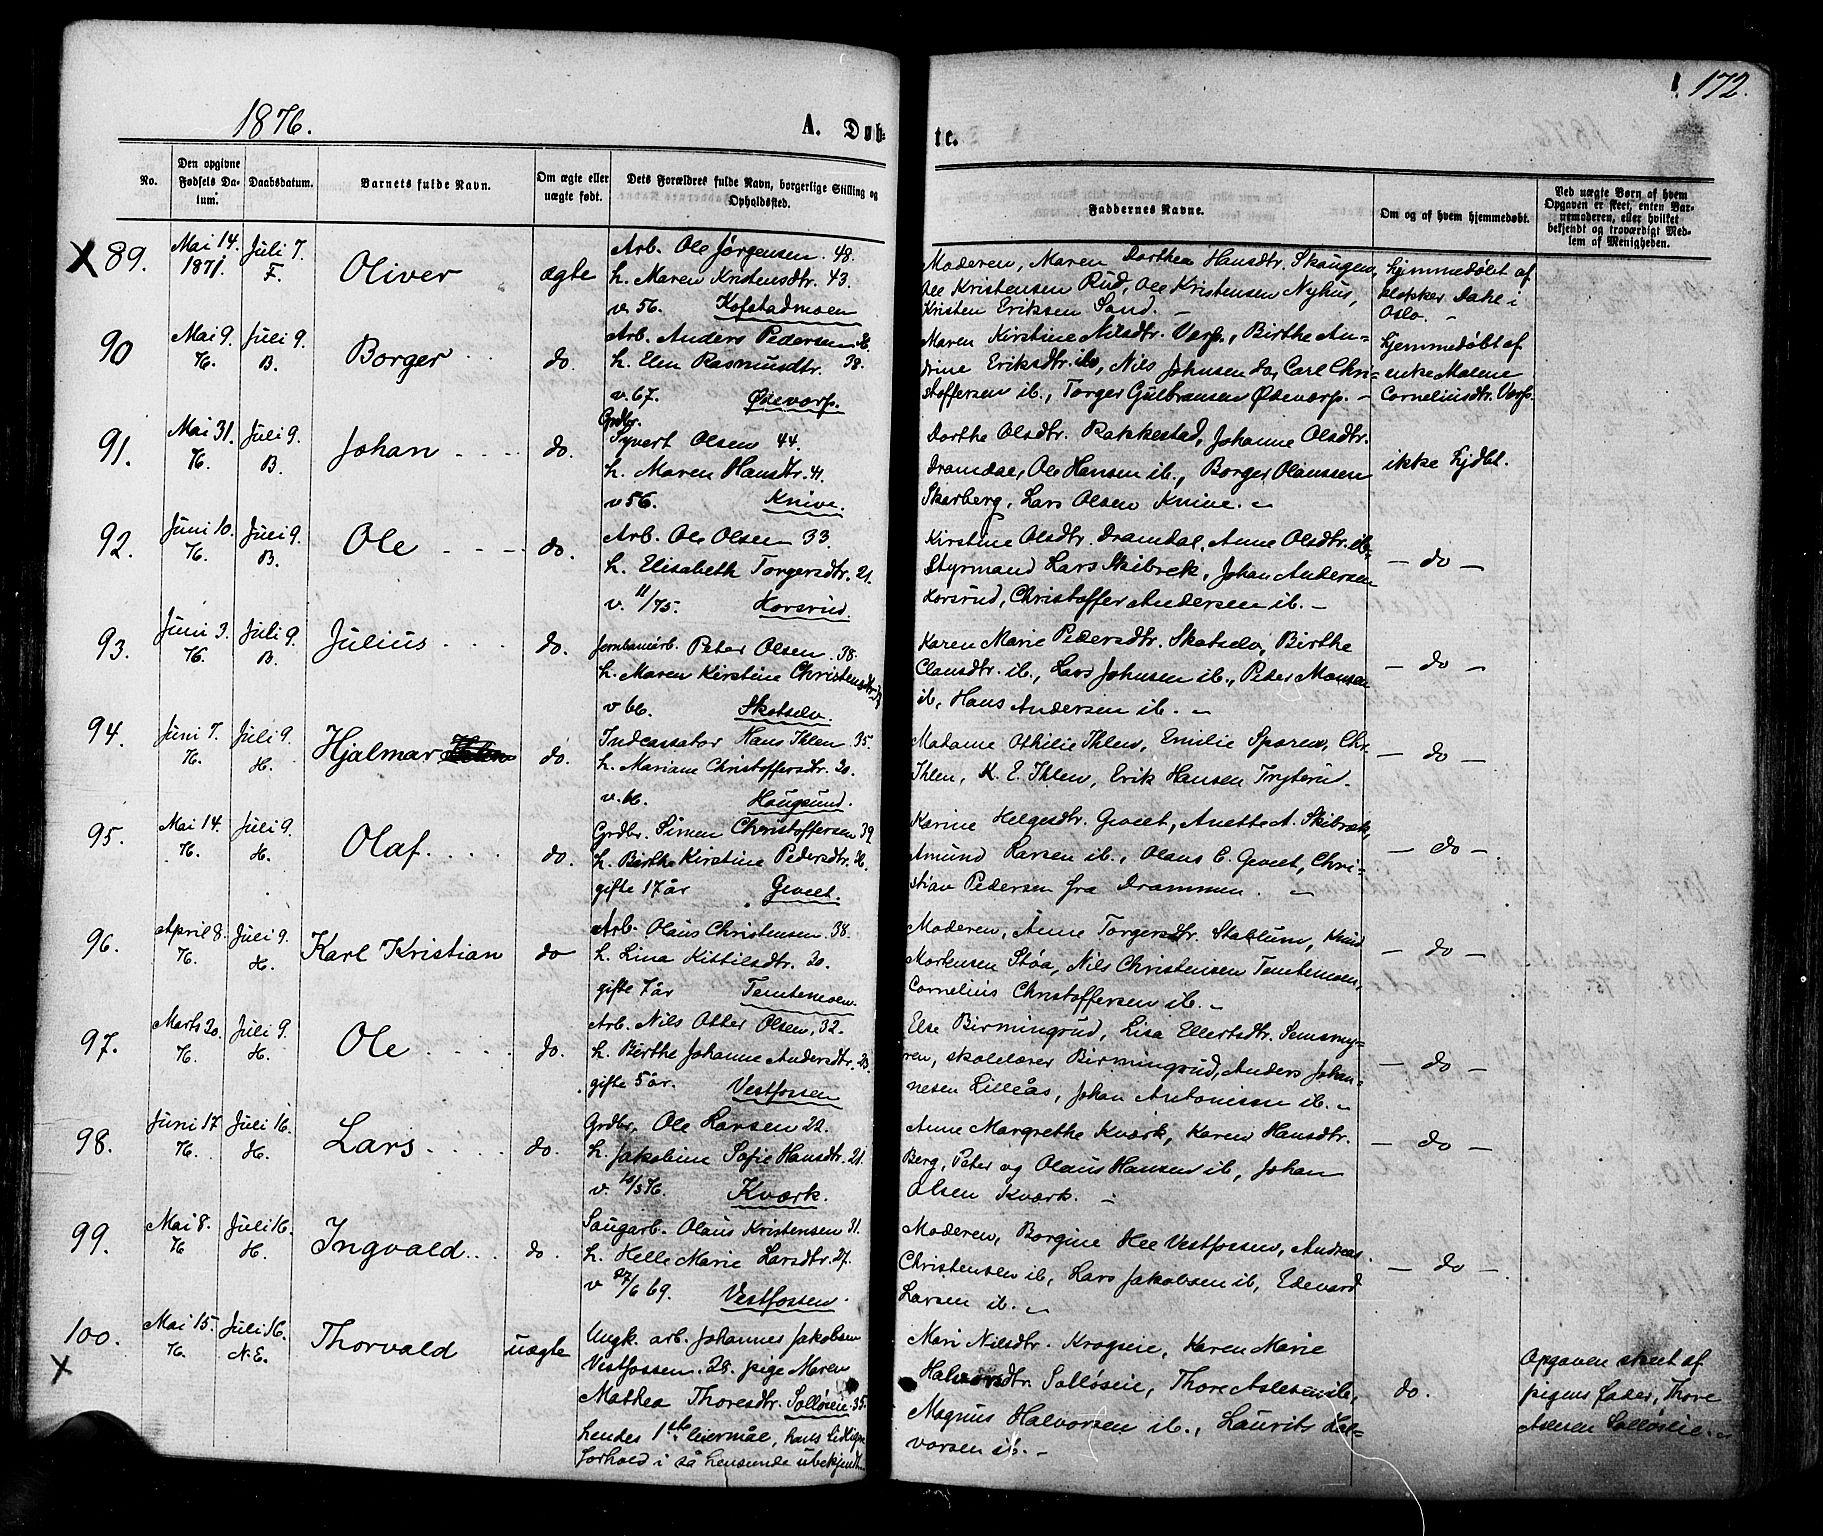 172.
1876.
A. Døb-
te.
No.
Den opgivne Fødsels Da-tum.
Daabsdatum.
Barnets fulde Navn.
Om ægte eller uægte født.
Dets Forældres fulde Navn, borgerlige Stilling og Opholdssted.
Faddernes Navne.
Om og af hvem hjemmedøbt.
Ved uægte Børn af hvem Opgaven er skeet, enten Bar-nemoderen, eller hvilket bekjendt og troværdigt Med-lem af Menigheden.
X 89.
Mai 14.
1871.
Juli 7.
F.
Oliver
ægte
Arb. Ole Jørgensen 48.
h. Maren Kristensdtr. 43.
v. 56. Kofstadmoen
Moderen, Maren Dorthea Hansdtr. Skaugen,
Ole Kristensen Rud, Ole Kristensen Nyhus,
Kristen Eriksen Sand. –
hjemmedøbt af
klokker Dahl i
Oslo. –
90
Mai 9.
H.
Juli 9.
B.
Borger
do
Arb. Anders Pedersen 36.
h. Elen Rasmusdtr. 38.
v. 67. Ødevarp.
Maren Kirstine Nilsdtr. Varp, Birthe An-
drine Eriksdtr. ib, Nils Johnsen do, Carl Chri-
stoffersen ib., Torger Gulbransen Ødevarp. –
hjemmedøbt af
enke Malene
Corneliusdtr. Varp.
91.
Mai 31.
H.
Juli 9.
B.
Johan
do.
Grdbr.
Syvert Olsen 44.
h. Maren Hansdtr. 41.
v 56. Knive.
Dorthe Olsdtr. Rakkestad, Johanne Olsdtr.
Dramdal, Ole Hansen ib., Borger Olaussen
Skarberg, Lars Olsen Knive. –
ikke hjdbt.
92.
Juni 10.
H.
Juli 9.
B.
Ole
do.
Arb. Ole Olsen 33.
h. Elisabeth Torgersdtr. 21.
v. 11/75. Horsrud.
Kirstine Olsdtr. Dramdal, Anne Olsdtr. ib.
Styrmand Lars Skibrek, Johan Andersen
Horsrud, Christoffer Andersen ib. –
– do –
93.
Juni 3.
H.
Juli 9.
B.
Julius
do.
Jernbanearb. Peter Olsen 38.
h. Maren Kirstine Christensdtr.
v 66. Skotselv.
Karen Marie Pedersdtr. Skotselv, Birthe
Clausdtr. ib., Lars Johnsen ib., Peter Monsen
ib, Hans Andersen ib. –
– do –
94.
Juni 7.
H.
Juli 9.
H.
Hjalmar
do.
Indcassator Hans Ihlen 35.
h. Mariane Christoffersdtr. 30.
v. 66. Hougsund.
Madame Othilie Ihlen, Emilie Sporen, Chr.
Ihlen, K. E. Ihlen, Erik Hansen Tryterud.
– do –
95.
Mai 14.
H.
Juli 9.
H.
Olaf
do.
Grdbr. Simen Christoffersen 39
h. Birthe Kirstine Pedersdtr. 36.
gifte 17 år Geveet.
Karine Helgesdtr. Geveet, Anette A. Skibrek,
Amund Larsen ib., Olaus C. Geveet, Chri-
stian Pedersen fra Drammen. –
– do –
96.
April 8.
H.
Juli 9.
H.
Karl Kristian
do
Arb. Olaus Christensen 38.
h. Lina Kittilsdtr. 30.
gifte 7 år Temtemoen.
Moderen, Anne Torgersdtr. Stablum, Knud
Mortensen Støa, Nils Christensen Temtemoen,
Cornelius Christoffersen ib. –
– do –
97.
Marts 20.
H.
Juli 9.
H.
Ole
do.
Arb. Nils Otter Olsen, 32.
h. Berthe Johanne Andersdtr. 23.
gifte 5 år. Vestfossen
Else Birmingrud, Lisa Ellertsdtr. Semsmy-
ren, skolelærer Birmingrud, Anders Johan-
nesen Lilleås, Johan Antonissen ib. –
– do –
98.
Juni 17
H.
Juli 16.
H.
Lars
do.
Grdbr. Ole Larsen 22.
h. Jakobine Sofie Hansdtr. 21.
v. 10/3 76. Kværk.
Anne Margrethe Kværk, Karen Hansdtr.
Berg, Peter og Olaus Hansen ib, Johan
Olsen Kværk. –
– do –
99.
Mai 8.
H
Juli 16.
H.
Ingvald
do.
Saugarb. Olaus Kristensen 31.
h. Helle Marie Larsdtr. 27.
v 27/6 69. Vestfossen.
Moderen, Borgine Hee Vestfossen, Andreas
Christensen ib., Lars Jakobsen ib., Edevard
Larsen ib. –
– do –
100.
X
Mai 15.
H.
Juli 16.
N.E.
Thorvald
uægte
Ungk. arb. Johannes Jakobsen
Vestfossen. 28. pige Maren
Mathea Thoresdtr. Solløseie 35.
hendes 1ste leiermål, hans tidligere
forhold i så henseende ubekjendt.
Mari Nilsdtr. Krogseie, Karen Marie
Halvorsdtr. Solløseie, Thore Aslesen ib,
Magnus Halvorsen ib., Laurits Hal-
vorsen ib. –
do.
Opgaven skeet af
pigens fader, Thore
Aslesen Solløseie. –